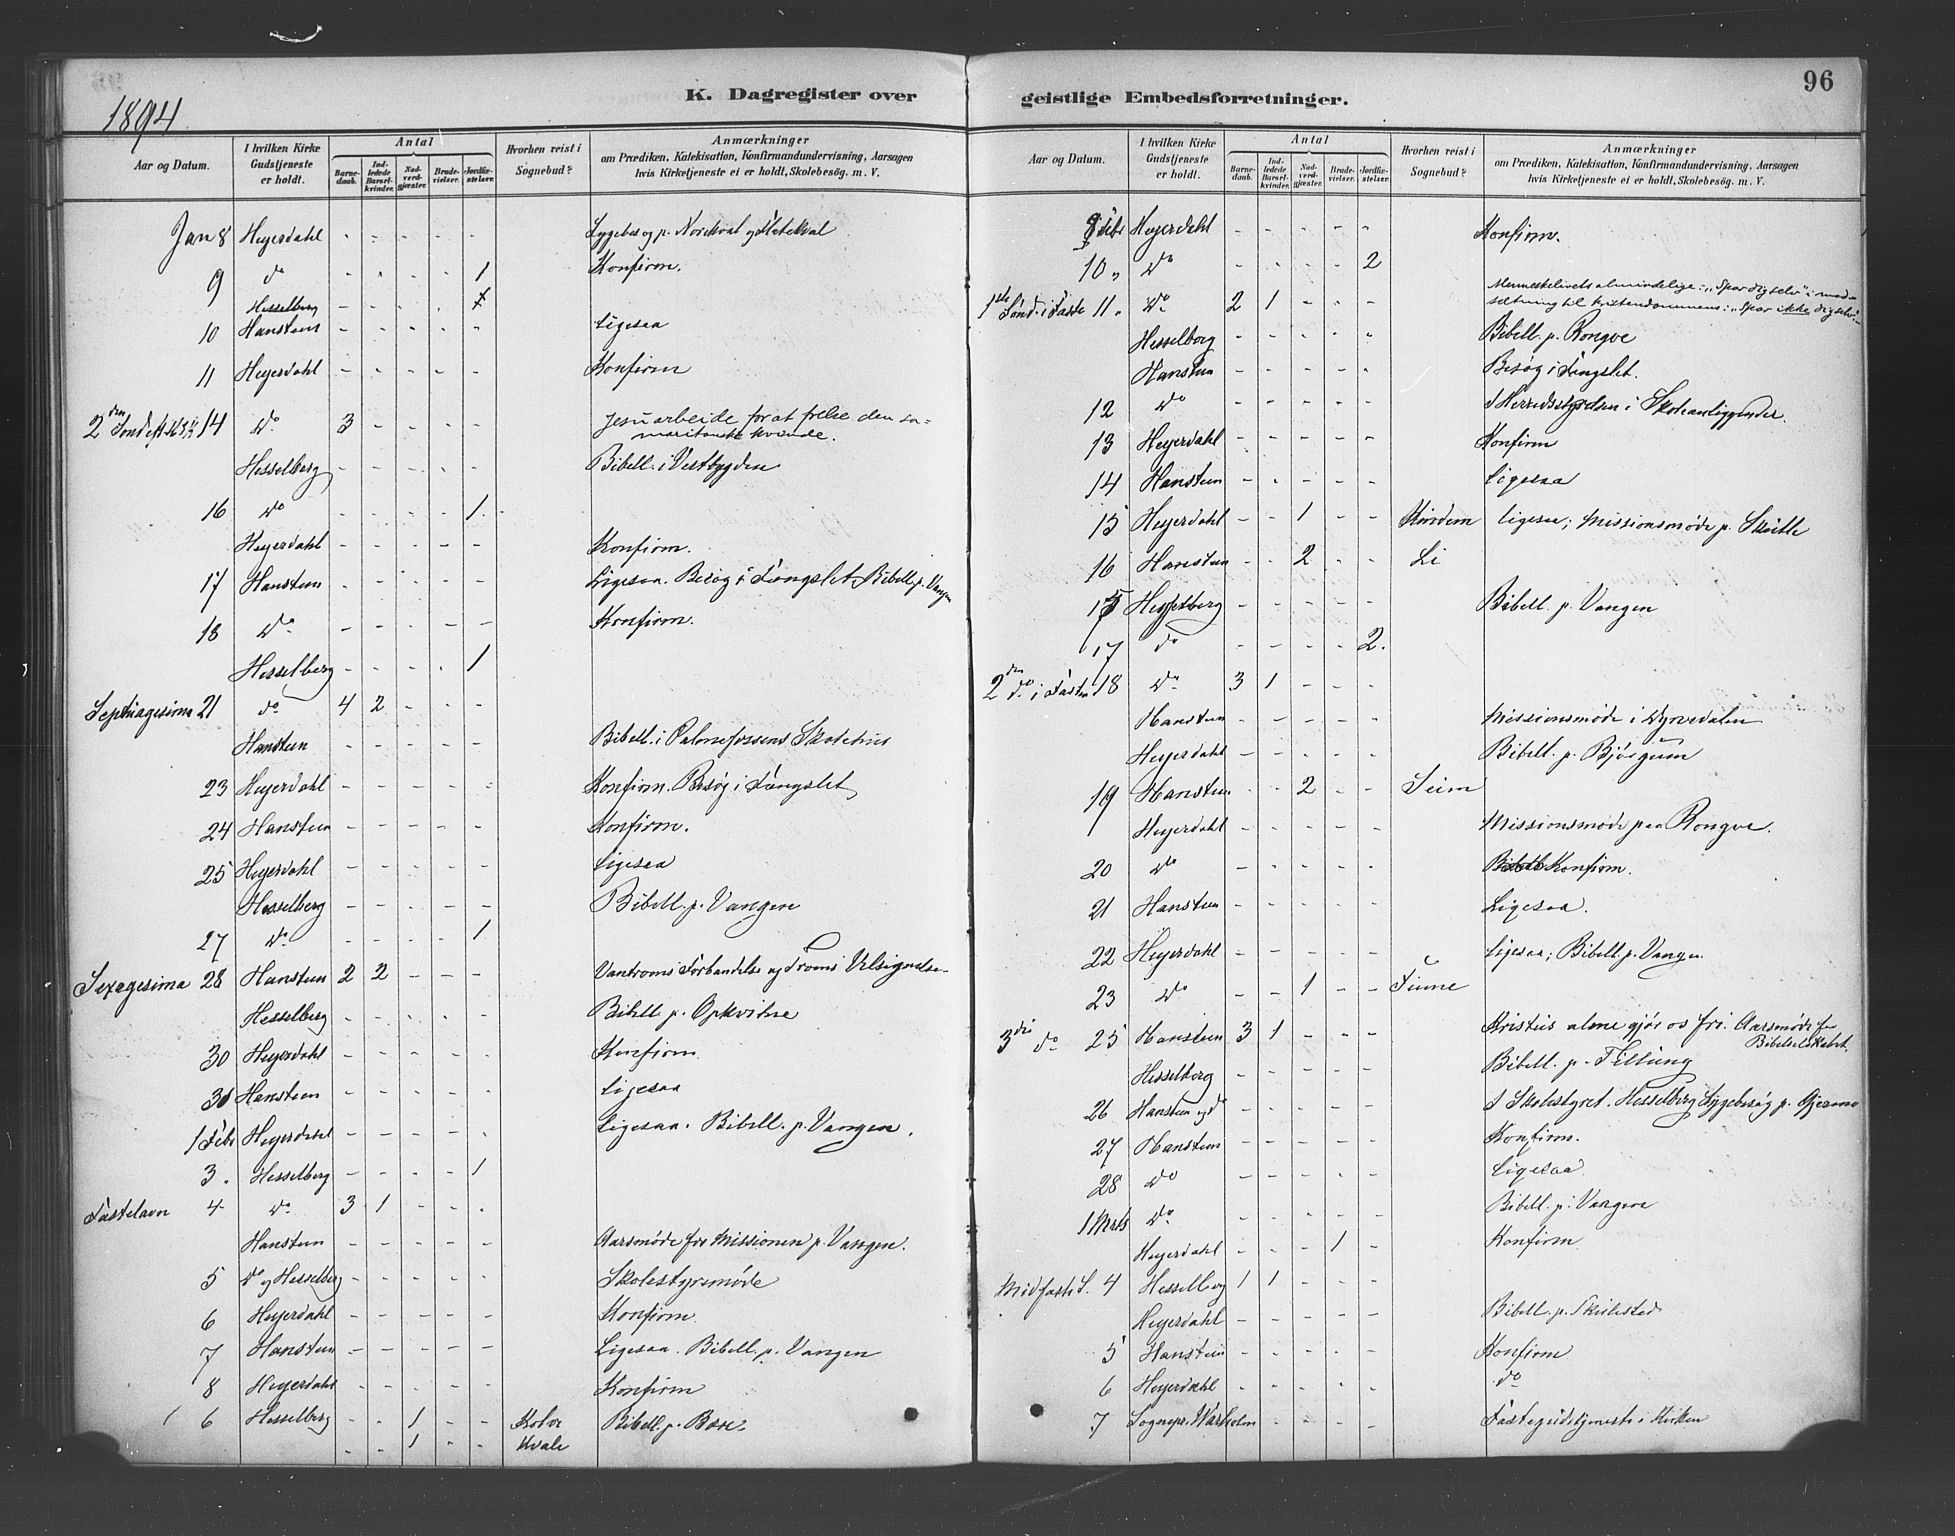 K. Dagregister over
1894
Aar og Datum.
I hvilken Kirke Gudstjeneste er holdt.
Antal
Barnedaab.
Indledede Barselkvinder.
Nadverdgjæster.
Brudevielser.
Jordfæstelser.
Hvorhen reist i Sognebud?
Anmærkninger
om Prædiken, Katekisation, Konfirmandundervisning, Aarsagen
hvis Kirketjeneste ei er holdt, Skolebesøg. m. V.
Jan 8 Heyerdahl - - - - -
9 do - - - - 1 Konfirm.
Hesselberg - - - -
10 Hansteen - - - - - Ligesaa
11 Heyerdahl - - - - - Konfirm
2den Sønd 14 Do 3 - - - - Jesu arbeide for at frelse den sa-
maritanske kvinde.
Hesselberg - - - - - Bibell. i Vestbygden
16 Do - - - - 1.
Heyerdahl - - - - - Konfirm.
17 Hansteen - - - - - Ligesaa. Besøg i Fængslet, Bibell. p. Vangen
18 Do - - - - - Konfirm.
Hesselberg - - - - 1
Septuagesima 21 do 4 2 - - -
Hansteen - - - - - Bibell. i Palmefossens Skolehus
23 Heyerdahl - - - - - Konfirm. Besøg i Fængslet
24 Hansteen - - - - - Konfirm.
25 Heyerdahl - - - - - Ligesaa
Hesselberg - - - - - Bibell. p. Vangen
27 Do - - - - 1
Sexagesima 28 Hansteen 2 2 - - - Vantroens Forbandelse og Troens Velsignelse.
Hesselberg - - - - - Bibell. p. Opkvitne
30 Heyerdahl - - - - - Konfirm.
31 Hansteen - - - - - Ligesaa
1 Febr Heyerdahl - - - - - Ligesaa. Bibell. p. Vangen.
3. Hesselberg - - - - 1
Fastelavn 4 Do 3 1 - - -
Hansteen - - - - - Aarsmøde for Missionen p. Vangen.
5 Do og Hesselberg - - - - - Skolestyremøde
6 Heyerdahl - - - - - Konfirm.
7 Hansteen - - - - - Ligesaa. Bibell. p. Vangen
8 Heyerdahl - - - - - Konfirm
6 Hesselberg - - 1 - - Kolve Bibell. p. Bøe.
- - 1 - - Kvale
geistlige Embedsforretninger.
96
Aar og Datum.
I hvilken Kirke Gudstjeneste er holdt.
Antal
Barnedaab.
Indledede Barselkvinder.
Nadverdgjæster.
Brudevielser.
Jordfæstelser.
Hvorhen reist i Sognebud?
Anmærkninger
om Prædiken, Katekisation, Konfirmandundervisning, Aarsagen
hvis Kirketjeneste ei er holdt, Skolebesøg. m. V.
Febr Heyerdahl - - - - - Konfirm.
10 " Do - - - - 2
1ste Sønd. i Faste 11 " Do 2 1 - - - Menneskelivets almindelige: "Spar dig selv" i mod-
sætning til kristendommens: "Spar ikke dig selv".
Hesselberg - - - - - Bibell. p. Rongve
Hansteen - - - - - Besøg i Fængslet.
12 Do - - - - - I Herredsstyrelsen i Skoleanliggender.
13 Heyerdahl - - - - - Konfirm
14 Hansteen - - - - - Ligesaa
15 Heyerdahl - - 1 - - Ligesaa; Missionsmøde p.
16 Hansteen - - 2 - - Li
15 Hesselberg - - - - - Bibell. p. Vangen
17 do - - - - 2.
2den do i Fasten 18 Do 3 1 - - -
Hansteen - - - - - Missionsmøde i Dyrvedalen
Heyerdahl - - - - - Bibell. p. Bjørgum
19 Hansteen - - 2 - - Seim
Heyerdahl - - - - - Missionsmøde paa Rongve.
20 Do - - - - - Konfirm.
21 Hansteen - - - - - Ligesaa.
22 Heyerdahl - - - - - Ligesaa; Bibell. p. Vangen
23 Do - - 1 - -
3die do 25 Hansteen 3 1 - - - Kristus alene gjør os fri. Aarsmøde for
Bibelselskabet.
Hesselberg - - - - - Bibell. p. Tillung
26 Hansteen og do - - - - - I Skolestyret. Hesselberg Sygebesøg p. Gjerme
27 Hansteen - - - - - Konfirm.
28 Do - - - - - Ligesaa
1 Mrts Do - - - - - Bibell. p. Vangen
Heyerdahl - - - 1 - Konfirm
Midfaste S. 4 Hesselberg 1 1 - - -
Heyerdahl - - - - - Bibell. p. Skulestad
5 Hansteen - - - - - Konfirm
6 Heyerdahl - - - - - do
7 Sognepr. Warholm - - - - - Fastegudstjeneste i Kirken